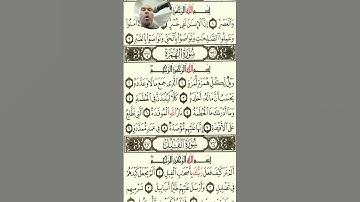 بِسْمِ اللَّهِ الرَّحْمَٰنِ الرَّحِيمِ
وَالْعَصْرِ ۝١ إِنَّ الْإِنسَانَ لَفِي خُسْرٍ ۝٢ إِلَّا الَّذِينَ آمَنُوا
وَعَمِلُوا الصَّالِحَاتِ وَتَوَاصَوْا بِالْحَقِّ وَتَوَاصَوْا بِالصَّبْرِ ۝٣
سُورَةُ الْهُمَزَةِ
بِسْمِ اللَّهِ الرَّحْمَٰنِ الرَّحِيمِ
وَيْلٌ لِّكُلِّ هُمَزَةٍ لُّمَزَةٍ ۝١ الَّذِي جَمَعَ مَالًا وَعَدَّدَهُ ۝٢
يَحْسَبُ أَنَّ مَالَهُ أَخْلَدَهُ ۝٣ كَلَّا لَيُنبَذَنَّ فِي الْحُطَمَةِ ۝٤
وَمَا أَدْرَاكَ مَا الْحُطَمَةُ ۝٥ نَارُ اللَّهِ الْمُوقَدَةُ ۝٦ الَّتِي تَطَّلِعُ
عَلَى الْأَفْئِدَةِ ۝٧ إِنَّهَا عَلَيْهِم مُّؤْصَدَةٌ ۝٨ فِي عَمَدٍ مُّمَدَّدَةٍ ۝٩
سُورَةُ الْفِيلِ
بِسْمِ اللَّهِ الرَّحْمَٰنِ الرَّحِيمِ
أَلَمْ تَرَ كَيْفَ فَعَلَ رَبُّكَ بِأَصْحَابِ الْفِيلِ ۝١ أَلَمْ يَجْعَلْ كَيْدَهُمْ
فِي تَضْلِيلٍ ۝٢ وَأَرْسَلَ عَلَيْهِمْ طَيْرًا أَبَابِيلَ ۝٣ تَرْمِيهِم